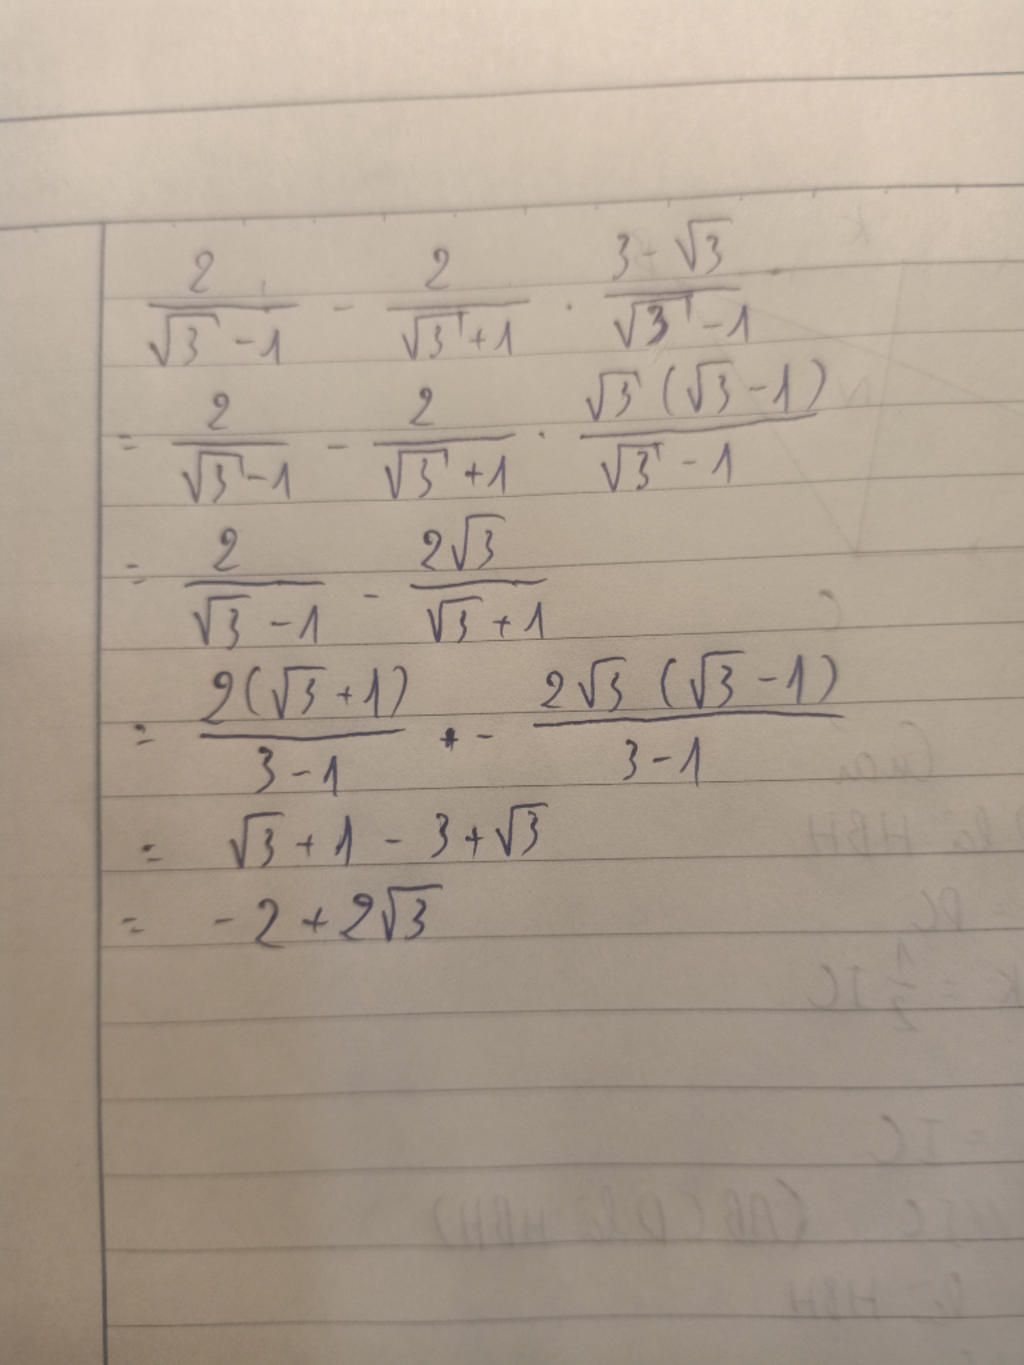 2/(√3 - 1) - 2/(√3 + 1) · (3 - √3)/(√3 - 1)
= 2/(√3 - 1) - 2/(√3 + 1) · √3 (√3 - 1)/(√3 - 1)
= 2/(√3 - 1) - 2√3/(√3 + 1)
= 2(√3 + 1)/(3 - 1) - 2√3 (√3 - 1)/(3 - 1)
= √3 + 1 - 3 + √3
= -2 + 2√3